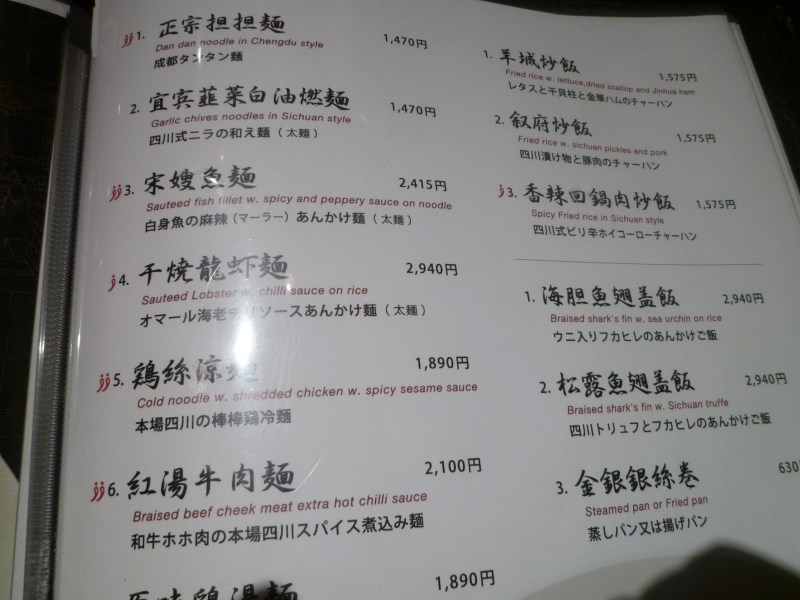 1. 正宗担担麺 1,470円
Dan dan noodle in Chengdu style
成都タンタン麺
2. 宜宾韮菜白油燃麺 1,470円
Garlic chives noodles in Sichuan style
四川式ニラの和え麺（太麺）
3. 宋嫂魚麺 2,415円
Sauteed fish fillet w. spicy and peppery sauce on noodle
白身魚の麻辣（マーラー）あんかけ麺（太麺）
4. 干焼龍虾麺 2,940円
Sauteed Lobster w. chilli sauce on rice
オマール海老チリソースあんかけ麺（太麺）
5. 鶏絲涼麺 1,890円
Cold noodle w. shredded chicken w. spicy sesame sauce
本場四川の棒棒鶏冷麺
6. 紅湯牛肉麺 2,100円
Braised beef cheek meat extra hot chilli sauce
和牛ホホ肉の本場四川スパイス煮込み麺
原味鶏湯麺 1,890円
1. 羊城炒飯 1,575円
Fried rice w. lettuce,dried scallop and Jinhua ham
レタスと干貝柱と金華ハムのチャーハン
2. 叙府炒飯 1,575円
Fried rice w. sichuan pickles and pork
四川漬け物と豚肉のチャーハン
3. 香辣回鍋肉炒飯 1,575円
Spicy Fried rice in Sichuan style
四川式ピリ辛ホイコーローチャーハン
1. 海胆魚翅盖飯 2,940円
Braised shark's fin w. sea urchin on rice
ウニ入りフカヒレのあんかけご飯
2. 松露魚翅盖飯 2,940円
Braised shark's fin w. Sichuan truffe
四川トリュフとフカヒレのあんかけご飯
3. 金銀銀絲巻 630
Steamed pan or Fried pan
蒸しパン又は揚げパン